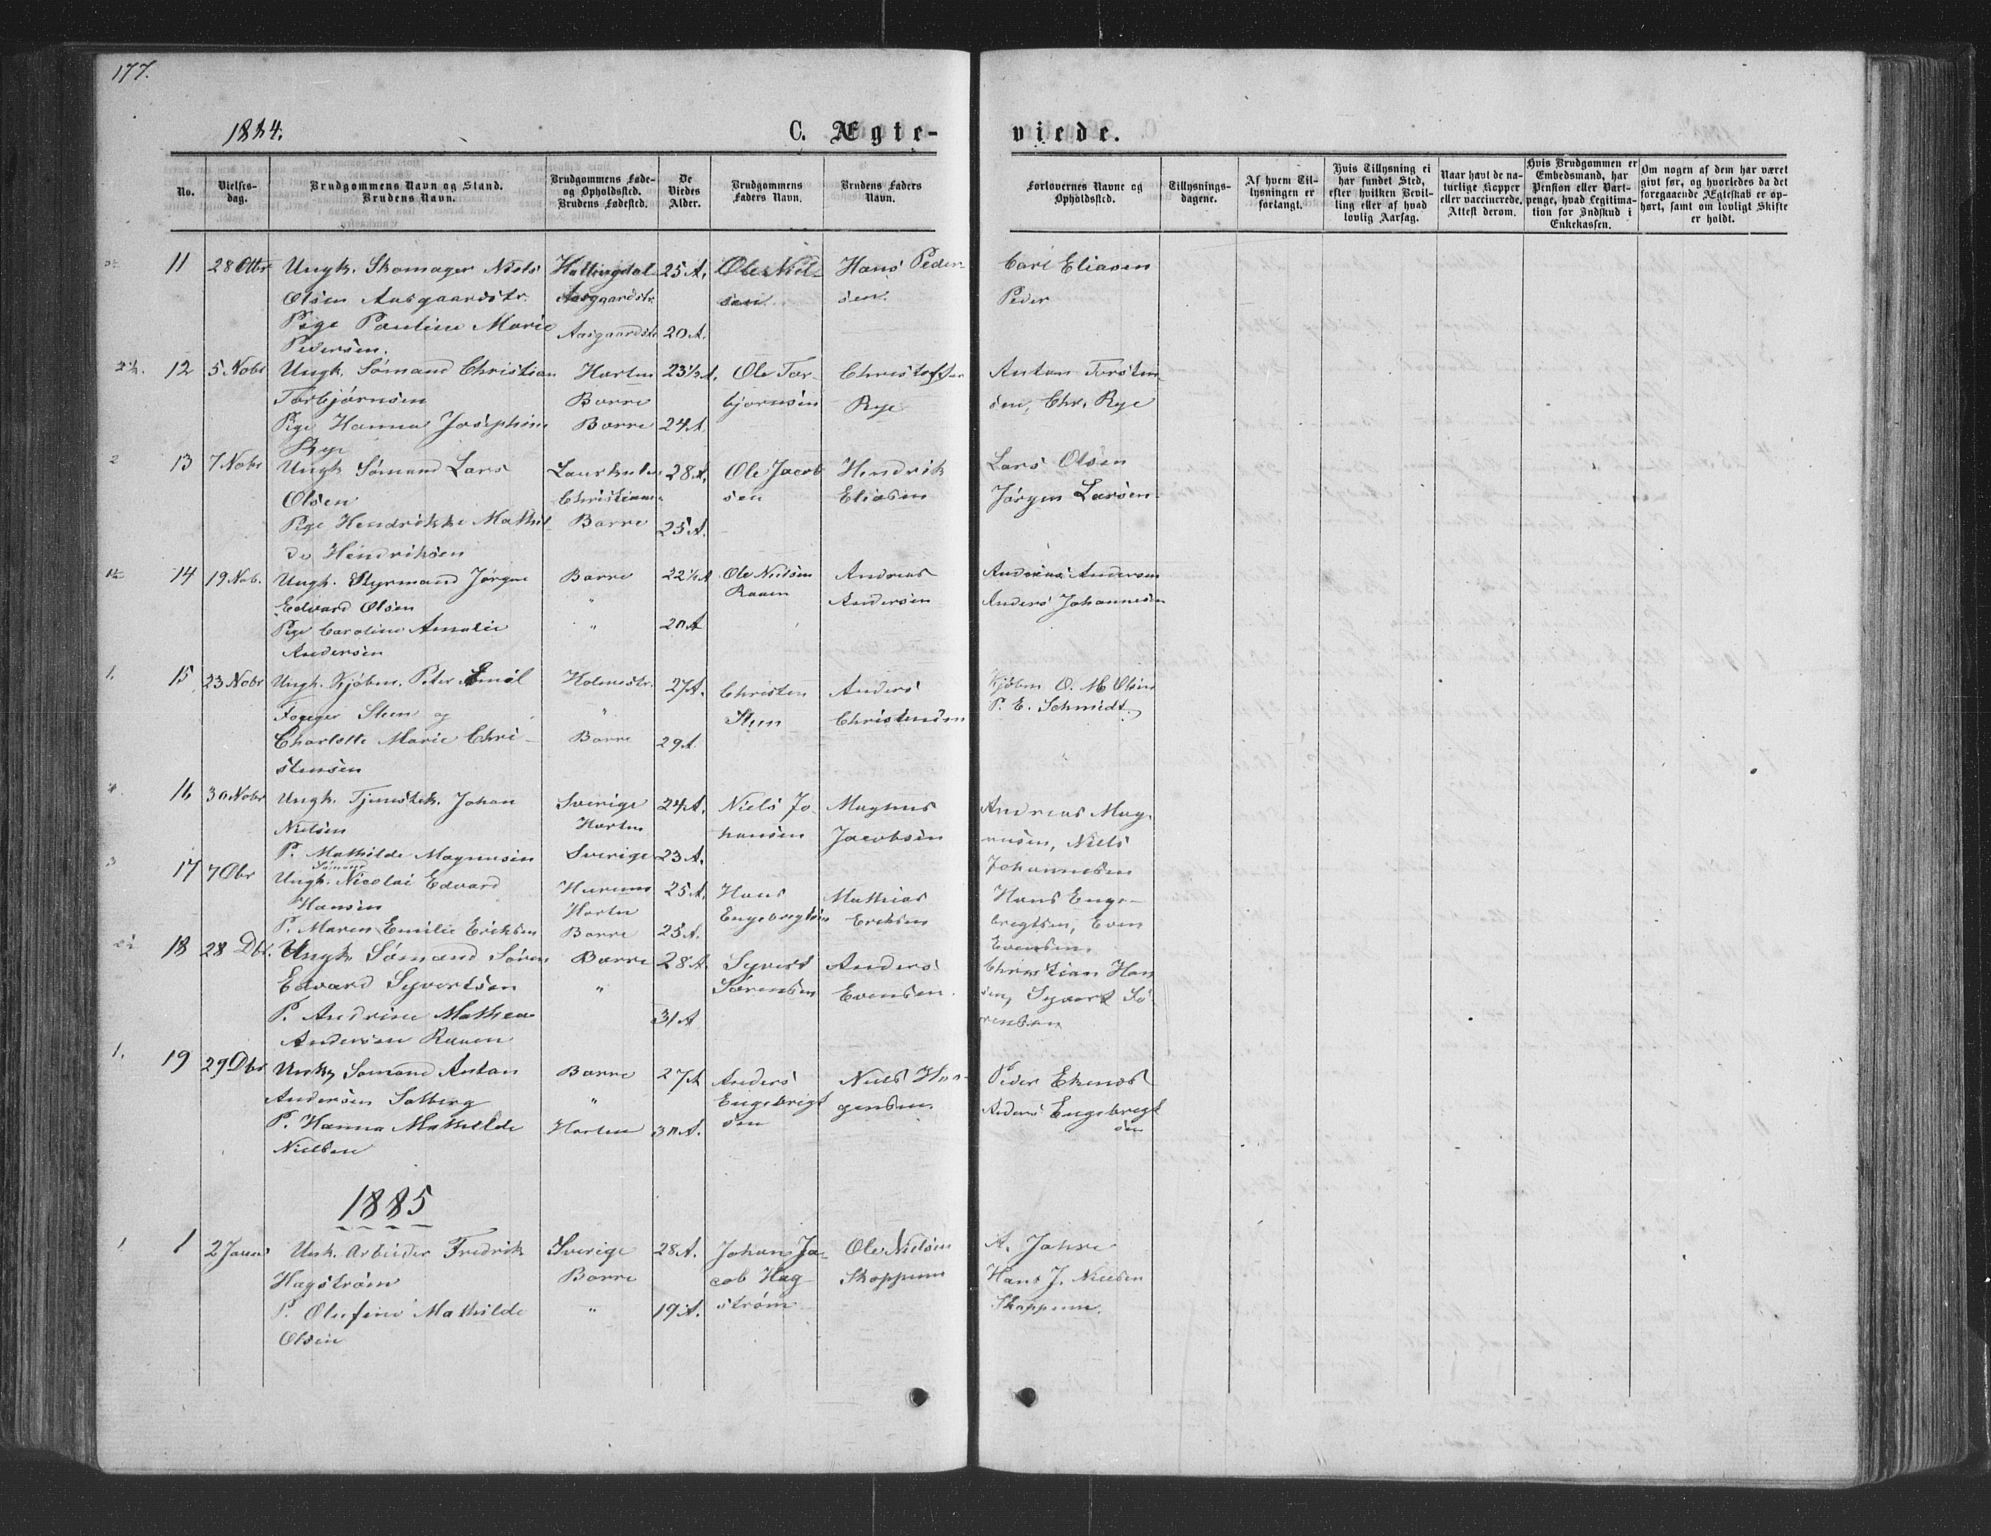 177.
1884.
C. Ægte-
viede.
No.
Vielses-
dag.
Brudgommens Navn og Stand.
Brudens Navn.
Brudgommens Føde-
og Opholdssted.
Brudens Fødested.
De
Viedes
Alder.
Brudgommens
Faders Navn.
Brudens Faders
Navn.
Forlovernes Navne og
Opholdssted.
Tillysnings-
dagene.
Af hvem Til-
lysningen er
forlangt.
Hvis Tillysning ei
har fundet Sted,
efter hvilken Bevil-
ling eller af hvad
lovlig Aarsag.
Naar havt de na-
turlige Kopper
eller vaccinerede.
Attest derom.
Hvis Brudgommen er
Embedsmand, har
Pension eller Vart-
penge, hvad Legitima-
tion for Indskud i
Enkekassen.
Om nogen af dem har været
givt før, og hvorledes da det
foregaaende Ægteskab er op-
hørt, samt om lovligt Skifte
er holdt.
11 28 Otbr Ungk. Skomager Niels Hallingdal 25 A. Ole Niel- Hans Peder- Carl Eliasen
Olsen Aasgaardstr. Aasgaardstr. sen sen. Peder
Pige Pauline Marie Aasgaardstr 20 A.
Pedersen.
12 5 Nobr Ungk. Sømand Christian Horten 23½ A. Ole Tor- Christoffer Anton Torsten
Torbjørnsen Borre bjørnsen Rye sen, Chr. Rye
Pige Hanna Josephine Borre 24 A.
Rye
2 13 7 Nobr Ungk Sømand Lars 28 A. Ole Jacob Hendrik Lars Olsen
Olsen Christian- sen Eliasen Jørgen Larsen
Pige Hendrikke Mathil Borre 25 A.
de Hendriksen
14 19 Nob. Ungk. Styrmand Jørgen Borre 22½ A Ole Nielsen Andreas Andreas Andersen
Edvard Olsen " Raaen Andersen Anders Johannesen
Pige Caroline Amalie " 20 A
Andersen
1. 15 23 Nobr Ungk. Kjøbm. Peter Emil Holmestr. 27 A. Christen Anders Kjøbm O. M. Olsen
Steen og " Steen Christensen P. E. Schmidt.
Charlotte Marie Chri- Borre 29 A.
stensen
16 30 Nobr Ungk. Tjenestek. Johan Sverige 24 A. Niels Jo- Magnus Andreas Mag-
Nielsen Horten hansen Jacobsen nusen, Niels
P. Mathilde Magnusen Sverige 23 A. Johannesen
3 17 7 Dbr Ungk. Sømand Nicolai Edvard Hurum 25 A. Hans Mathias Hans Enge-
Hansen Horten Engebregtsen Eriksen bregtsen, Even
P. Maren Emilie Eriksen Borre 25 A. Evensen.
18 28 Dbr. Ungk. Sømand Søren Borre 28 A. Syvert Anders Christian Han
Edvard Syvertsen " Sørensen Evensen. sen, Syvert Sø-
P. Andrine Mathea 31 A rensen
Andersen Raaen.
1. 19 29 Dbr Ungk Sømand Anton Borre 27 A Anders Niels Peder Ekenæs
Andersen Solberg " Engebrigt gensen Anders Engebregt
P. Hanna Mathilde Horten 30 A. sen sen
Nielsen
1885
1 1 2 Ungk. Arbeider Fredrik Sverige 28 A. Johan Ja- Ole Nielsen A. Jahre
Hagstrøm Borre cob Hag- Skoppum Hans J. Nielsen
P. Olufine Mathilde " 19 A. strøm Skoppum.
Olsen